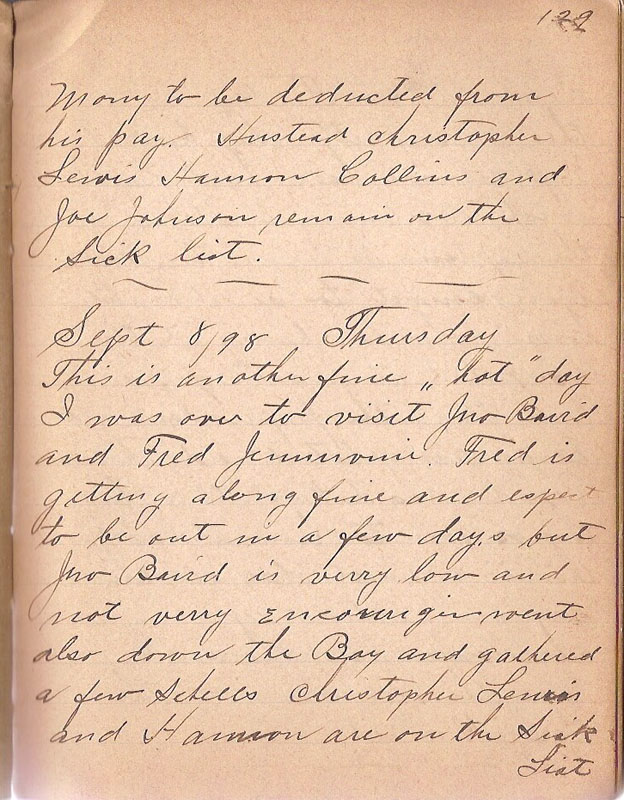 129
Mony to be deducted from
his pay. Hustead Christopher
Lewis Hamron Collins and
Joe Johnson remain on the
Sick list.
Sept 8/98 Thursday
This is another fine „hot" day
I was over to visit Jno Baird
and Fred. Fred is
getting along fine and espect
to be out in a few days but
Jno Baird is verry low and
not verry went
also down the Bay and gathered
a few Schells Christopher Lewis
and Hamron are on the Sick
List